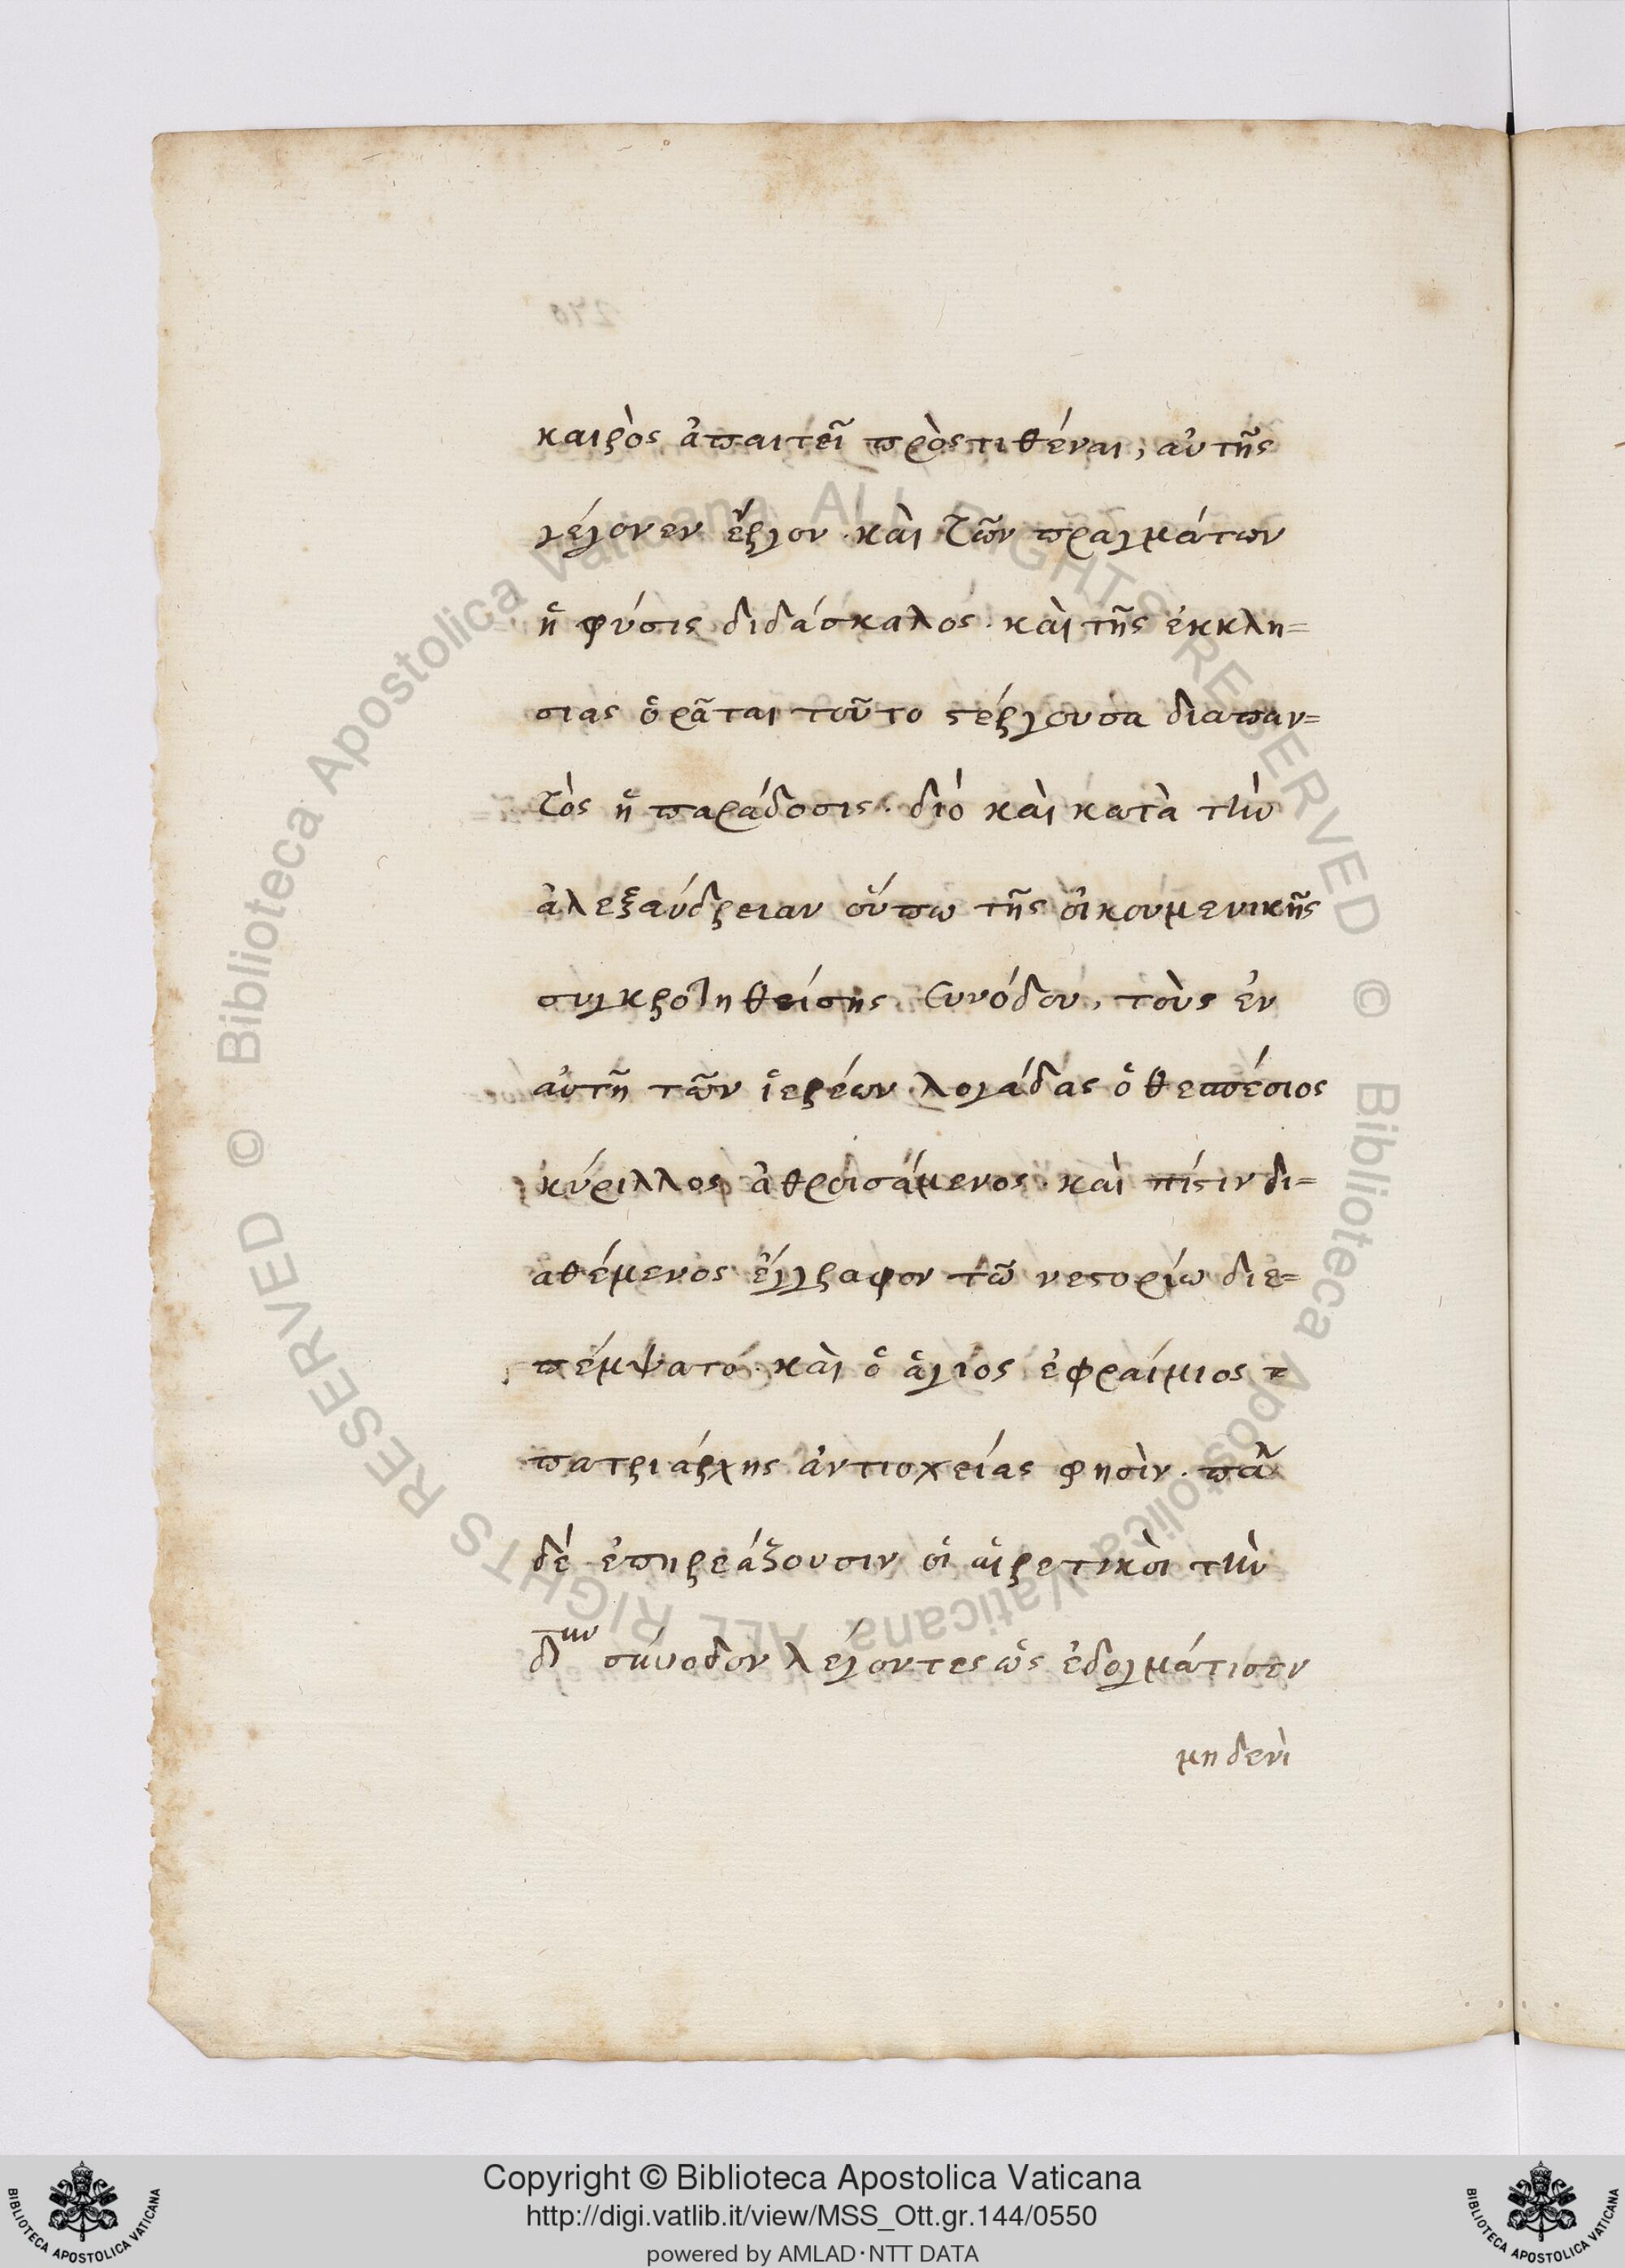 καιρὸς ἀπαιτεῖ πρὸςτιθέναι, αὐτῆς
γέγονεν ἔργον. καὶ τῶν πραγμάτων
ἡ φύσις διδάσκαλος. καὶ τῆς ἐκκλη=
σιας ὁρᾶται τοῦτο στέργουσα διαπαν=
τὸς ἡ παράδοσις. διό καὶ κατὰ τὴν
ἀλεξάνδρειαν οὔπω τῆς οἰκουμενικῆς
συγκροτηθείσης συνόδου, τοὺς ἐν
αὐτῆ τῶν ἱερέων λογάδας ὁ θεσπέσιος
κύριλλος ἀθροισάμενος. καὶ πίστιν δι=
αθέμενος ἔγγραφον τῶ νεστορίω διε=
πέμψατο. καὶ ὁ ἅγιος ἐφραίμιος
πατριάρχης ἀντιοχείας φησὶν.
δέ ἐπηρεάζουσιν οἱ αἱρετικοὶ τὴν
δ´ην σύνοδον λέγοντες ὡς ἐδογμάτισεν
μηδενὶ
270
© Biblioteca Apostolica Vaticana ALL RIGHTS RESERVED © Biblioteca Apostolica Vaticana ALL RIGHTS RESERVED
Copyright © Biblioteca Apostolica Vaticana
http://digi.vatlib.it/view/MSS_Ott.gr.144/0550
powered by AMLAD·NTT DATA
BIBLIOTECA APOSTOLICA VATICANA
BIBLIOTECA APOSTOLICA VATICANA